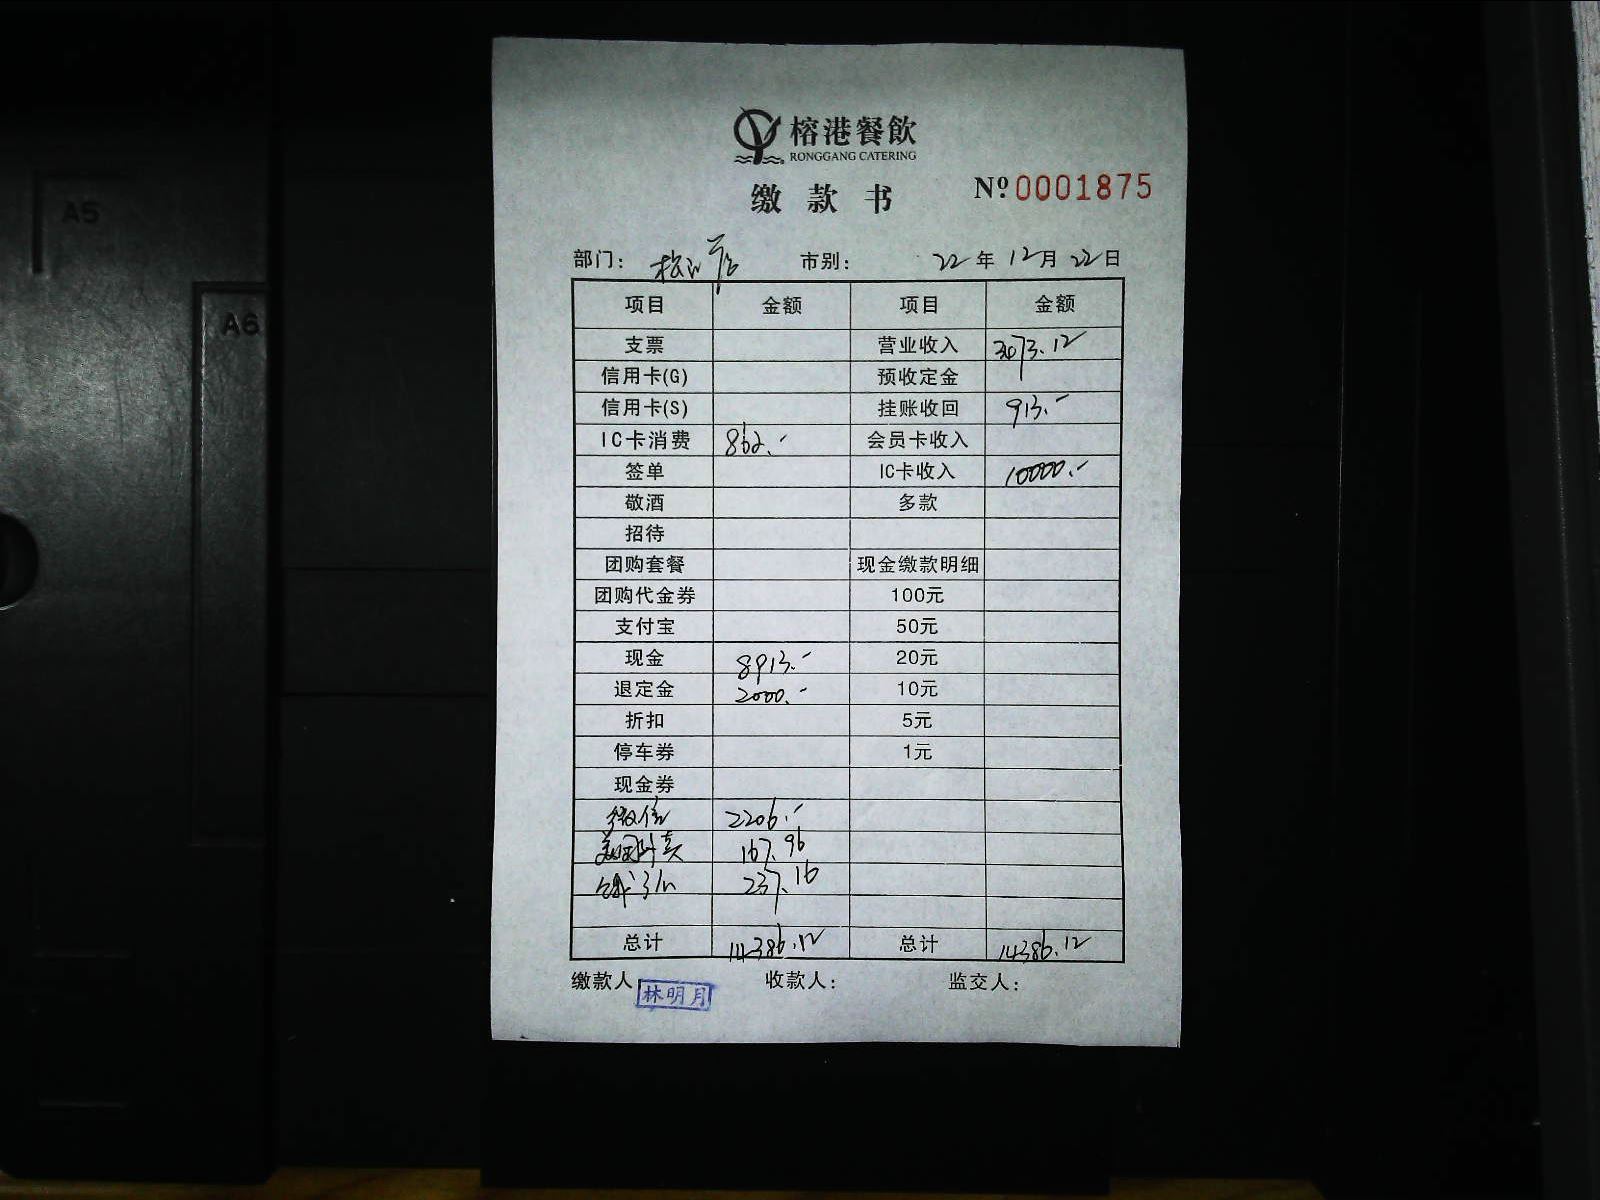 A5
A6
榕港餐飲
RONGGANG CATERING
缴款书 № 0001875
部门: 市别: 22年12月22日
项目 金额 项目 金额
支票 营业收入 3473.12
信用卡(G) 预收定金
信用卡(S) 挂账收回 913.-
IC卡消费 862.- 会员卡收入
签单 IC卡收入 10000.-
敬酒 多款
招待
团购套餐 现金缴款明细
团购代金券 100元
支付宝 50元
现金 8913.- 20元
退定金 2000.- 10元
折扣 5元
停车券 1元
现金券
微信 2206.-
美团外卖 167.96
饿了么 237.16
总计 14386.12 总计 14386.12
缴款人 林明月 收款人: 监交人: